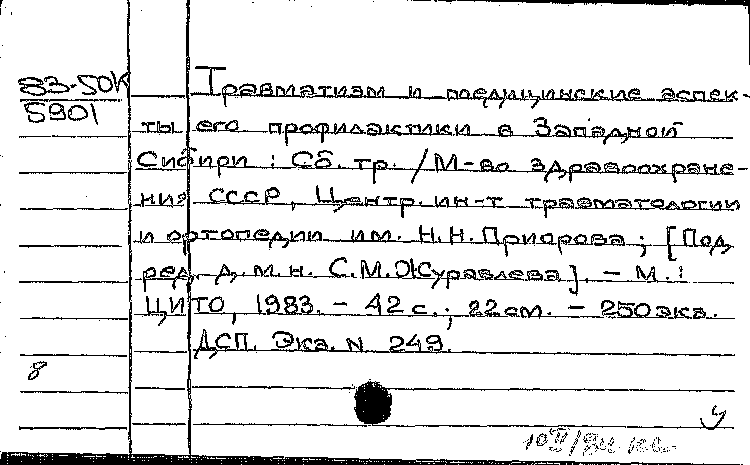 83-50К Травматизм и медицинские аспек-
5901
ты его профилактики в Западной
Сибири : Сб. тр. / М-во здравоохране-
ния СССР, Центр. ин-т травматологии
и ортопедии им. Н.Н. Приорова ; [Под
ред. д. м. н. С.М. Журавлева]. - М. :
ЦИТО, 1983. - 42 с. ; 22 см. - 250 экз.
ДСП. Экз. N 249.
8
у